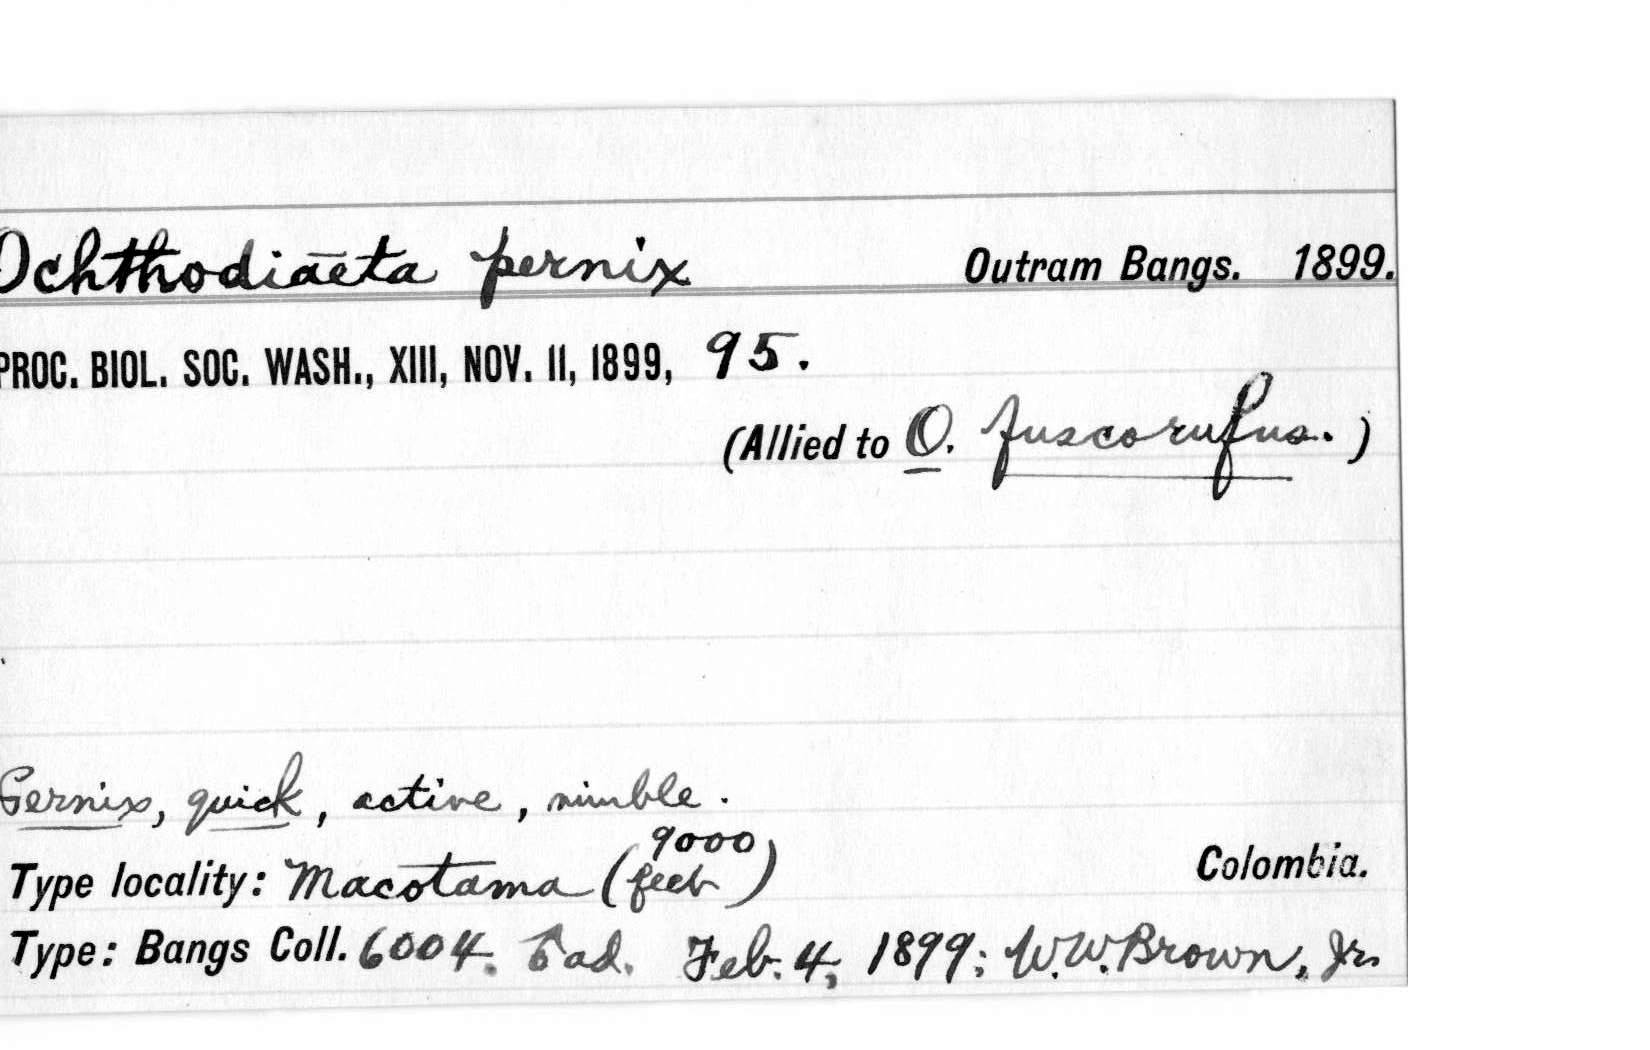 Ochthodiaeta pernix Outram Bangs. 1899.
PROC. BIOL. SOC. WASH., XIII, NOV. 11, 1899, 95.
(Allied to O. fuscorufus.)
Pernix, quick, active, nimble.
Type locality: Macotama (9000 feet) Colombia.
Type: Bangs Coll. 6004. ad. Feb. 4, 1899; W.W. Brown, Jr.